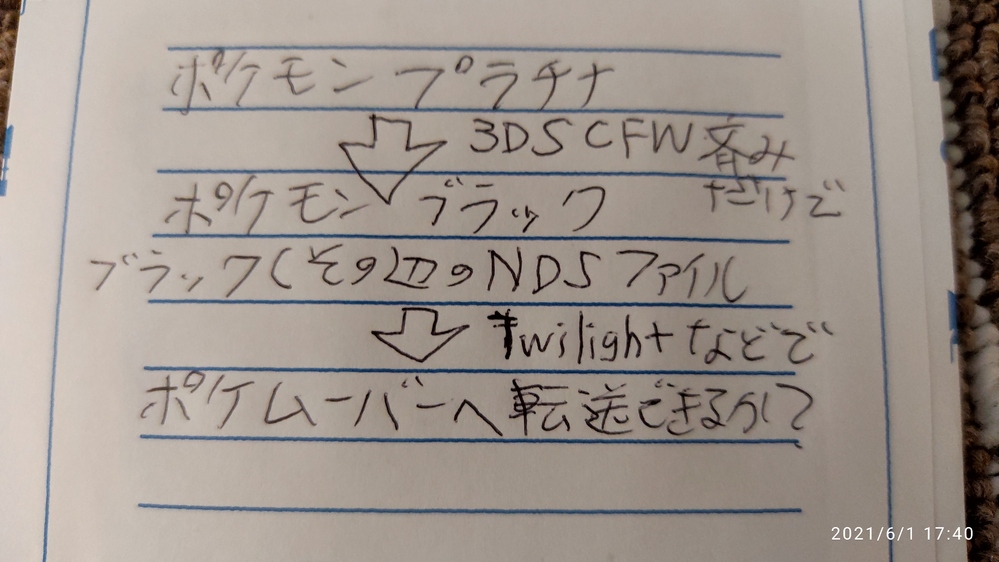 ポケモン プラチナ
3DS CFW済み
だけで
ポケモン ブラック
ブラック(その他のNDSファイル
Twilightなどで
ポケムーバーへ転送できるか?
2021/6/1 17:40